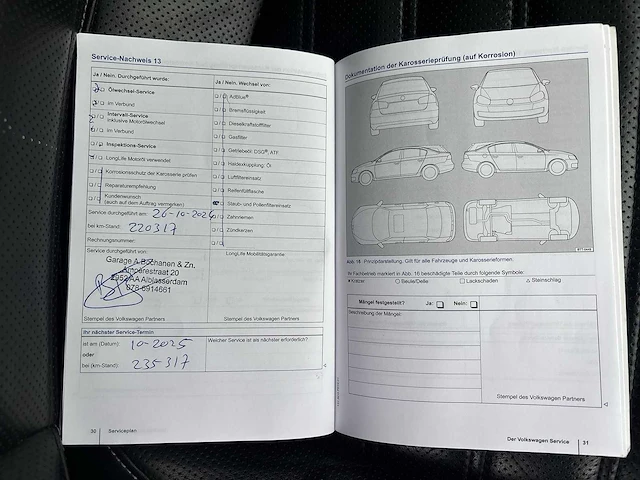 Service-Nachweis 13
Ja / Nein. Durchgeführt wurde:
Ölwechsel-Service
Im Verbund
Intervall-Service
Inklusive Motorölwechsel
Im Verbund
Inspektions-Service
LongLife Motoröl verwendet
Korrosionsschutz der Karosserie prüfen
Reparaturempfehlung
Kundenwunsch
(auch auf dem Auftrag vermerken)
Service durchgeführt am: 26-10-2024
bei km-Stand: 220317
Rechnungsnummer:
Service durchgeführt von:
Garage A.B. Zhanen & Zn.
Amperestraat 20
2952 AA Alblasserdam
078-6914661
Stempel des Volkswagen Partners
Ja / Nein. Wechsel von:
AdBlue®
Bremsflüssigkeit
Dieselkraftstofffilter
Gasfilter
Getriebeöl: DSG®, ATF
Haldexkupplung: Öl
Luftfiltereinsatz
Reifenfüllflasche
Staub- und Pollenfiltereinsatz
Zahnriemen
Zündkerzen
LongLife Mobilitätsgarantie
Stempel des Volkswagen Partners
Ihr nächster Service-Termin:
ist am (Datum): 10-2025
oder
bei (km-Stand): 235317
Welcher Service ist als nächster erforderlich?
30 Serviceplan
Dokumentation der Karosserieprüfung (auf Korrosion)
Abb. 16 Prinzipdarstellung. Gilt für alle Fahrzeuge und Karosserieformen.
Ihr Fachbetrieb markiert in Abb. 16 beschädigte Teile durch folgende Symbole:
Kratzer Beule/Delle Lackschaden Steinschlag
Mängel festgestellt? Ja: Nein:
Beschreibung der Mängel:
Stempel des Volkswagen Partners
Der Volkswagen Service 31